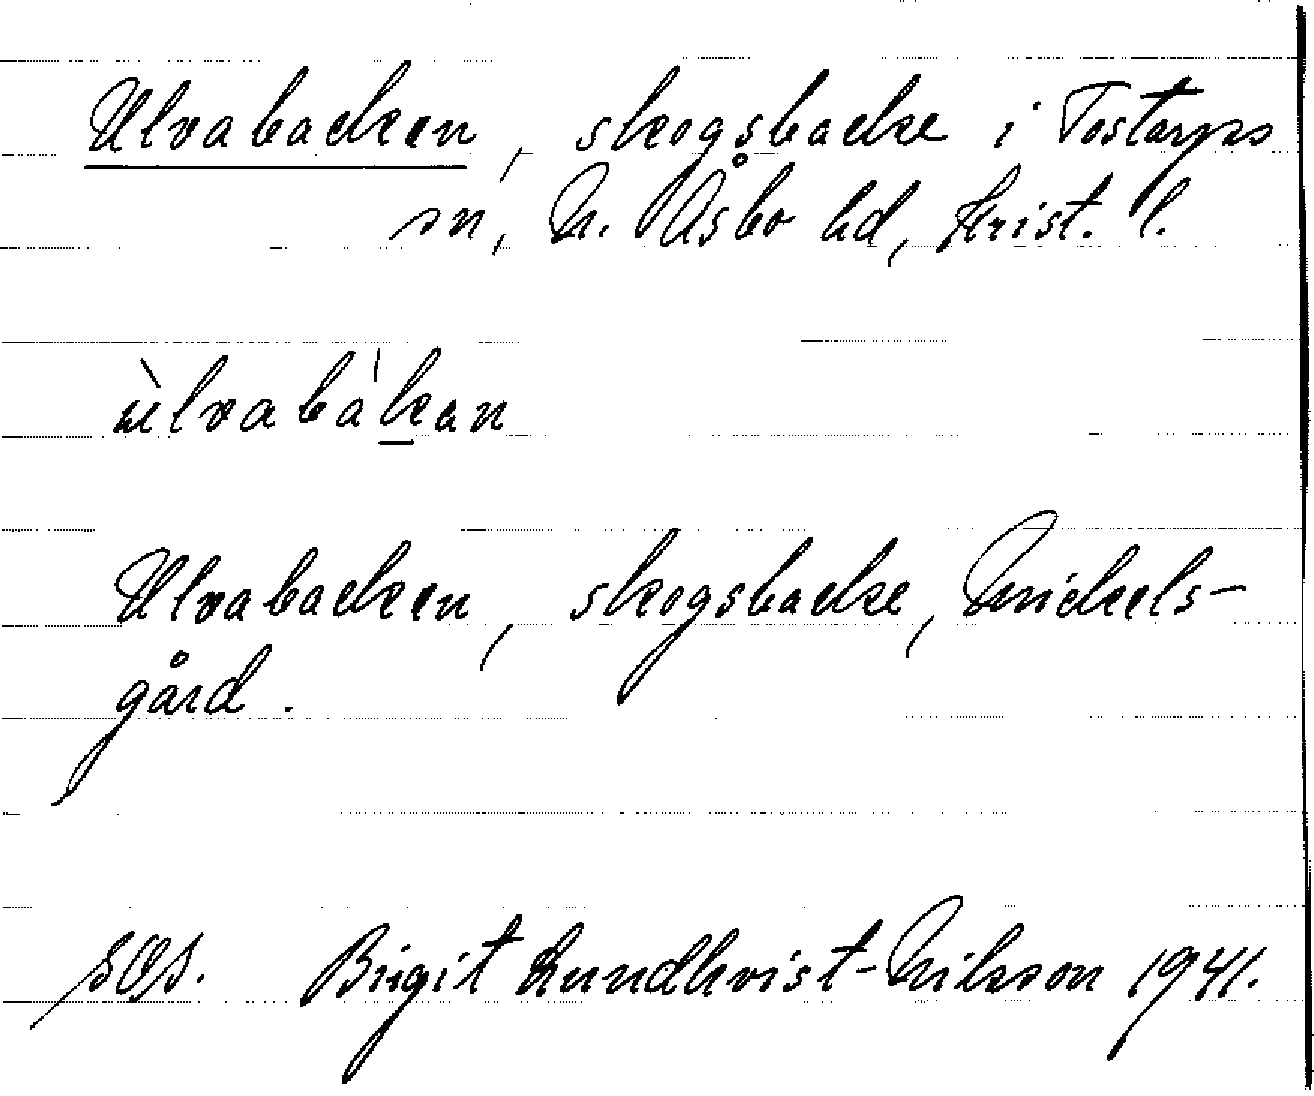 Ulvabacken, skogsbacke i Tostarps
sn, N. Åsbo hd, Krist. l.
ùlvabàk̲an
Ulvabacken, skogsbacke, Mickels-
gård.
SOS. Birgit Lundkvist-Nilsson 1941.